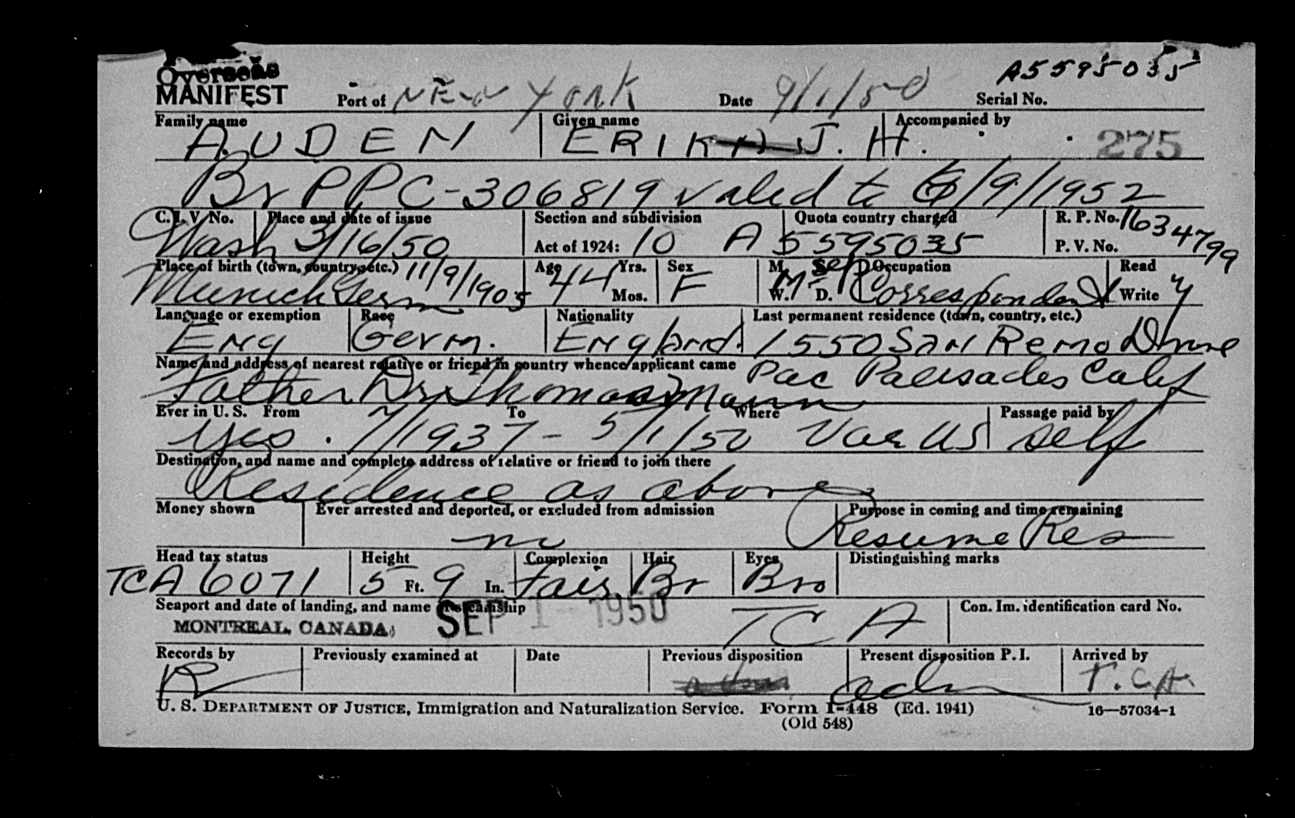 Overseas
MANIFEST Port of NEW YORK Date 9/1/50 Serial No. A5595035
Family name AUDEN Given name ERIKA J. H. Accompanied by 275
Br PPC-306819 valid to 6/9/1952
C.I.V No. Place and date of issue Section and subdivision Quota country charged R. P. No. 1634799
Wash 3/16/50 Act of 1924: 10 A5595035 P. V. No.
Place of birth (town, country, etc.) 11/9/1905 Age 44 Yrs. Sex M. Sep Occupation Read
Munich Germ Mos. F W. D. Correspondent Write y
Language or exemption Race Nationality Last permanent residence (town, country, etc.)
Eng Germ. England. 1550 San Remo Drive
Name and address of nearest relative or friend in country whence applicant came Pac Palisades Calif
Father Dr. Thomas Mann
Ever in U. S. From To Where Passage paid by
yes. 7/1937 - 5/1/50 Var US self
Destination, and name and complete address of relative or friend to join there
Residence as above
Money shown Ever arrested and deported, or excluded from admission Purpose in coming and time remaining
no Resume Res
Head tax status Height Complexion Hair Eyes Distinguishing marks
TCA 6071 5 Ft. 9 In. Fair Br Bro
Seaport and date of landing, and name of steamship Con. Im. identification card No.
MONTREAL, CANADA, SEP 1 - 1950 TCA
Records by Previously examined at Date Previous disposition Present disposition P. I. Arrived by
R adm T.C.A.
U. S. DEPARTMENT OF JUSTICE, Immigration and Naturalization Service. Form I-448 (Ed. 1941) 16—57034-1
(Old 548)